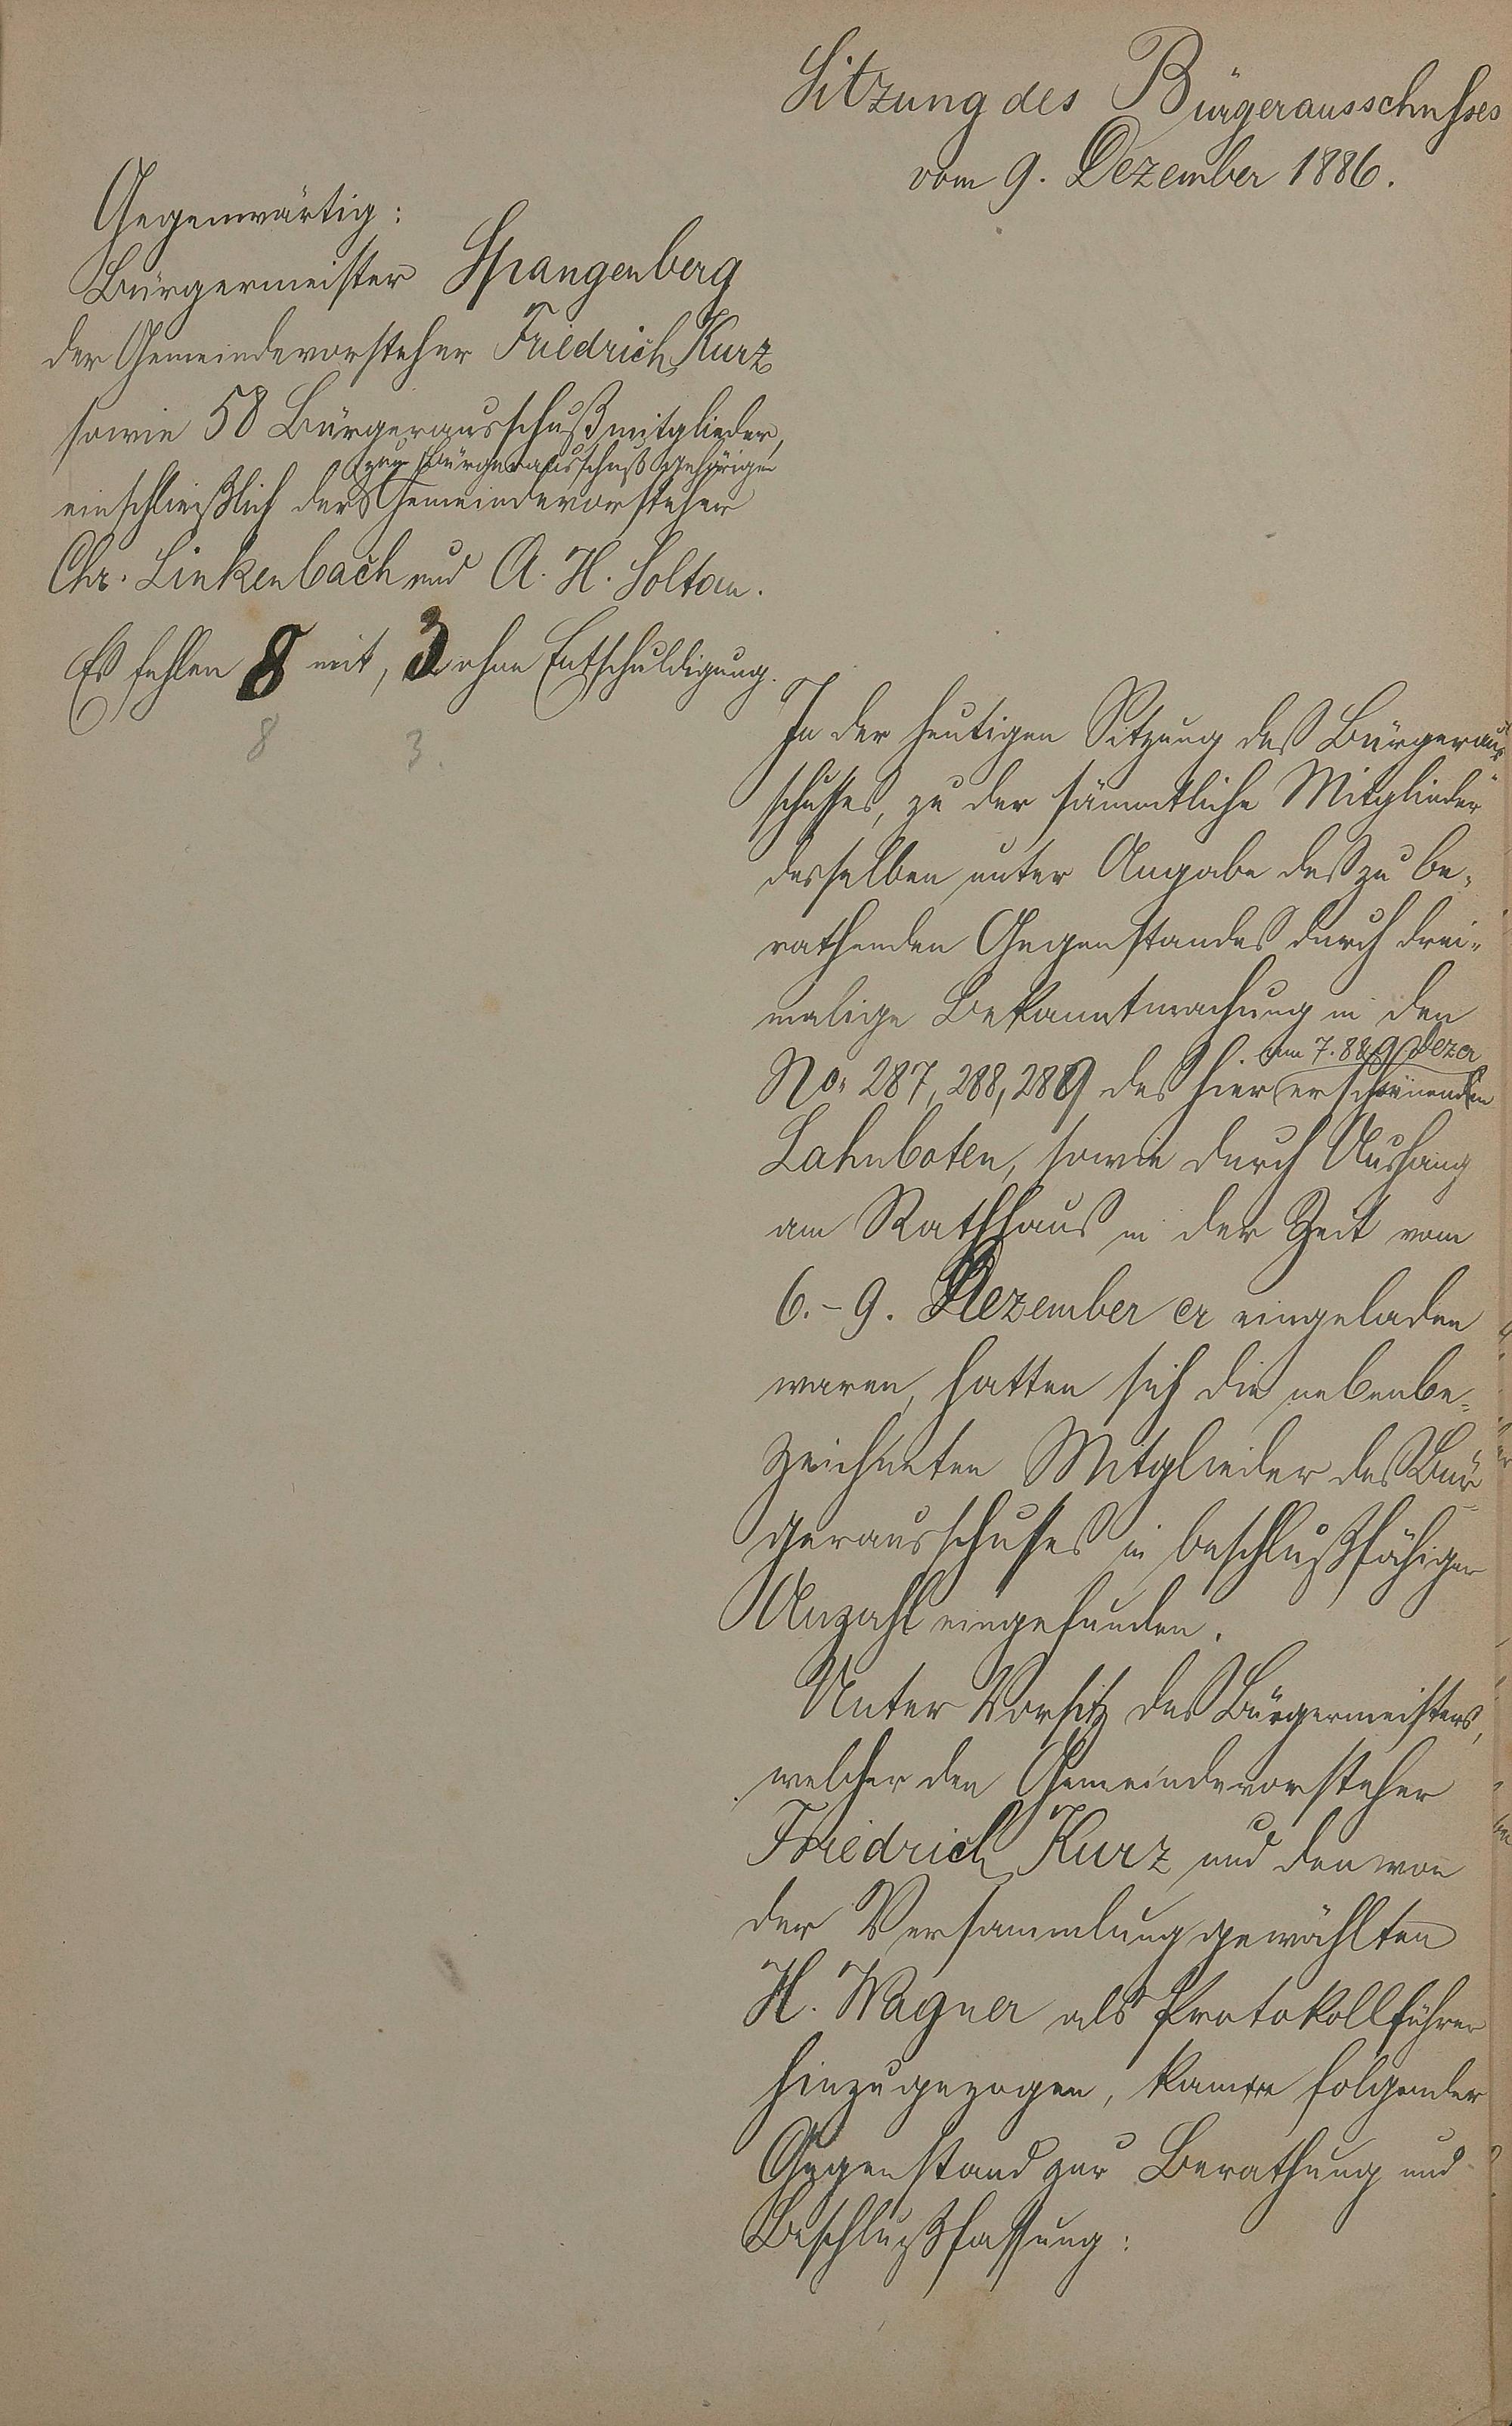 Sitzung des Bürgerausschusses
vom 9. Dezember 1886.
Gegenwärtig:
Bürgermeister Spangenberg
der Gemeindevorsteher Friedrich Kurz
sowie 58 Bürgerausschußmitglieder,
zum Bürgerausschuß gehörigen
einschließlich der Gemeindevorsteher
Chr. Linkenbach und A. H. Soltau.
Es fehlen 8 mit, 3 ohne Entschuldigung.
8 3.
In der heutigen Sitzung des Bürgeraus-
schusses, zu der sämmtliche Mitglieder
desselben unter Angabe des zu be-
rathenden Gegenstandes durch drei-
malige Bekanntmachung in den
am 7. 8 & 9 Dez cr
No. 287, 288, 289 des hier erscheinenden
Lahnboten, sowie durch Aushang
am Rathhaus in der Zeit vom
6.-9. Dezember cr eingeladen
waren, hatten sich die nebenbe-
zeichneten Mitglieder des Bür-
gerausschusses in beschlußfähiger
Anzahl eingefunden.
Unter Vorsitz des Bürgermeisters,
welcher den Gemeindevorsteher
Friedrich Kurz und den von
der Versammlung gewählten
H. Wagner als Protokollführer
hinzugezogen, kam folgender
Gegenstand zur Berathung und
Beschlußfassung: